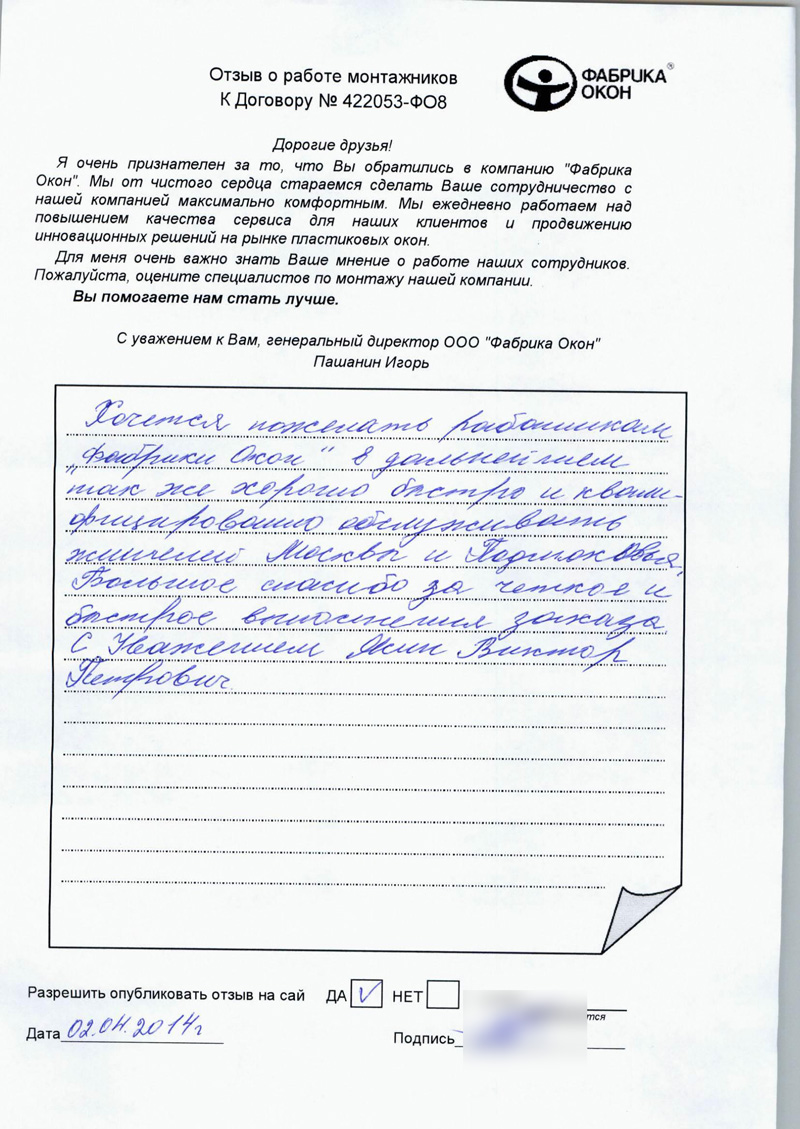 Отзыв о работе монтажников
К Договору № 422053-ФО8
ФАБРИКА®
ОКОН
Дорогие друзья!
Я очень признателен за то, что Вы обратились в компанию "Фабрика
Окон". Мы от чистого сердца стараемся сделать Ваше сотрудничество с
нашей компанией максимально комфортным. Мы ежедневно работаем над
повышением качества сервиса для наших клиентов и продвижению
инновационных решений на рынке пластиковых окон.
Для меня очень важно знать Ваше мнение о работе наших сотрудников.
Пожалуйста, оцените специалистов по монтажу нашей компании.
Вы помогаете нам стать лучше.
С уважением к Вам, генеральный директор ООО "Фабрика Окон"
Пашанин Игорь
Хочется пожелать работникам
„Фабрики Окон" в дальнейшем
так же хорошо быстро и квали-
фицировано обслуживать
жителей Москвы и Подмосковья,
Большое спасибо за четкое и
быстрое выполнения заказа.
С Уважением Виктор
Петрович.
Разрешить опубликовать отзыв на сай ДА V НЕТ
Дата 02.04.2014г
Подпись